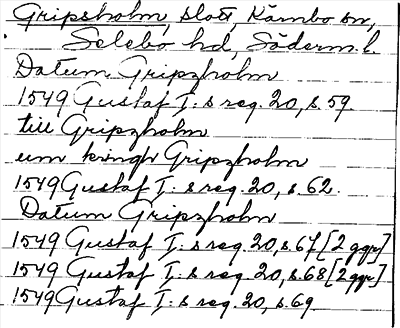 Gripsholm, slott, Kärnbo sn,
Selebo hd, Söderm. l.
Datum Gripzholm
1549 Gustaf I: s reg. 20, s. 59.
till Gripzholm
um kringh Gripzholm
1549 Gustaf I: s reg. 20, s. 62.
Datum Gripzholm
1549 Gustaf I: s reg. 20, s. 67 [2 ggr]
1549 Gustaf I: s reg. 20, s. 68 [2 ggr]
1549 Gustaf I: s reg. 20, s. 69